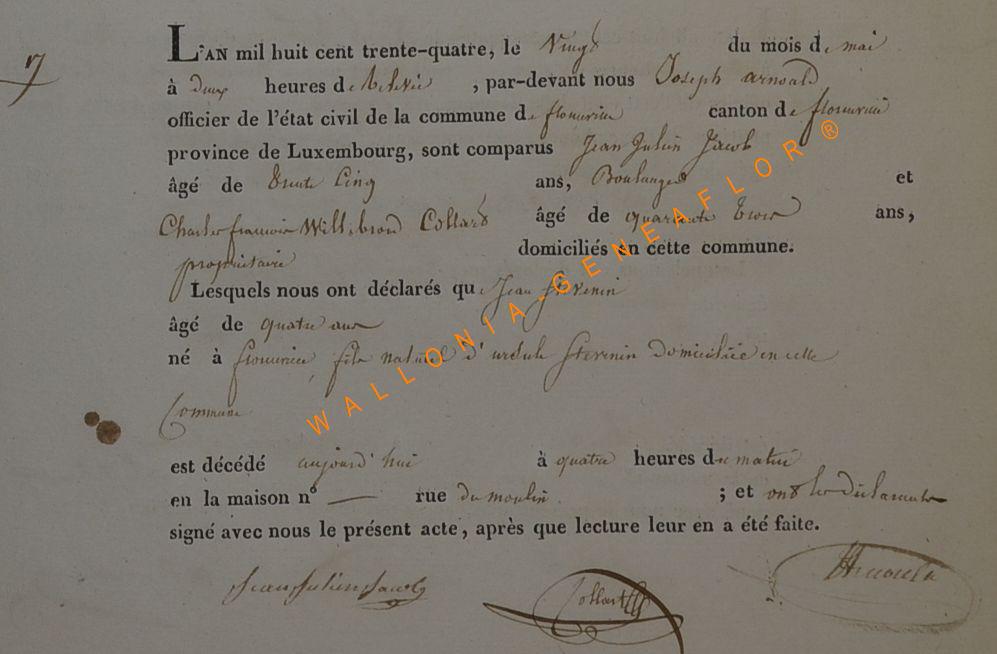 7
L'AN mil huit cent trente-quatre, le Vingt du mois de mai
à deux heures de Relevée, par-devant nous Joseph arnould
officier de l'état civil de la commune de florenville canton de florenville
province de Luxembourg, sont comparus Jean Julien Jacob
âgé de trente Cinq ans, Boulanger et
Charles françois Willebrord Collard âgé de quarante trois ans,
propriétaire domiciliés en cette commune.
Lesquels nous ont déclarés que Jean Stevenin
âgé de quatre ans
né à florenville, fils naturel d'ursule Stevenin Domiciliée en cette
Commune
est décédé aujourd'hui à quatre heures du matin
en la maison n° — rue du moulin ; et ont les déclarants
signé avec nous le présent acte, après que lecture leur en a été faite.
Jean Julien Jacob Collard
WALLONIA-GENEAFLOR ®